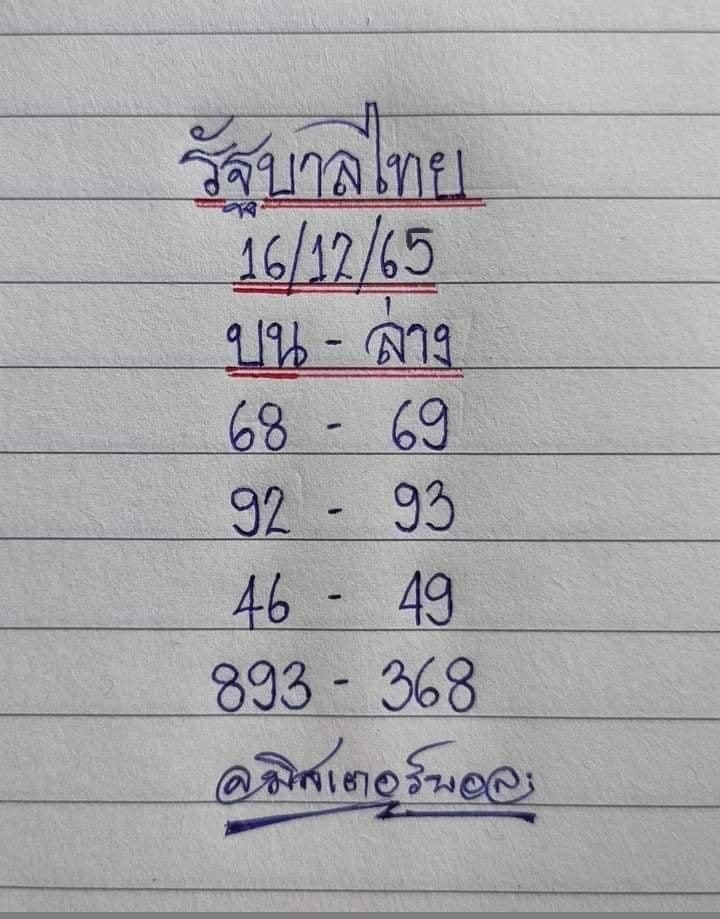 รัฐบาลไทย
16/12/65
บน - ล่าง
68 - 69
92 - 93
46 - 49
893 - 368
อมิสเตอร์พอล